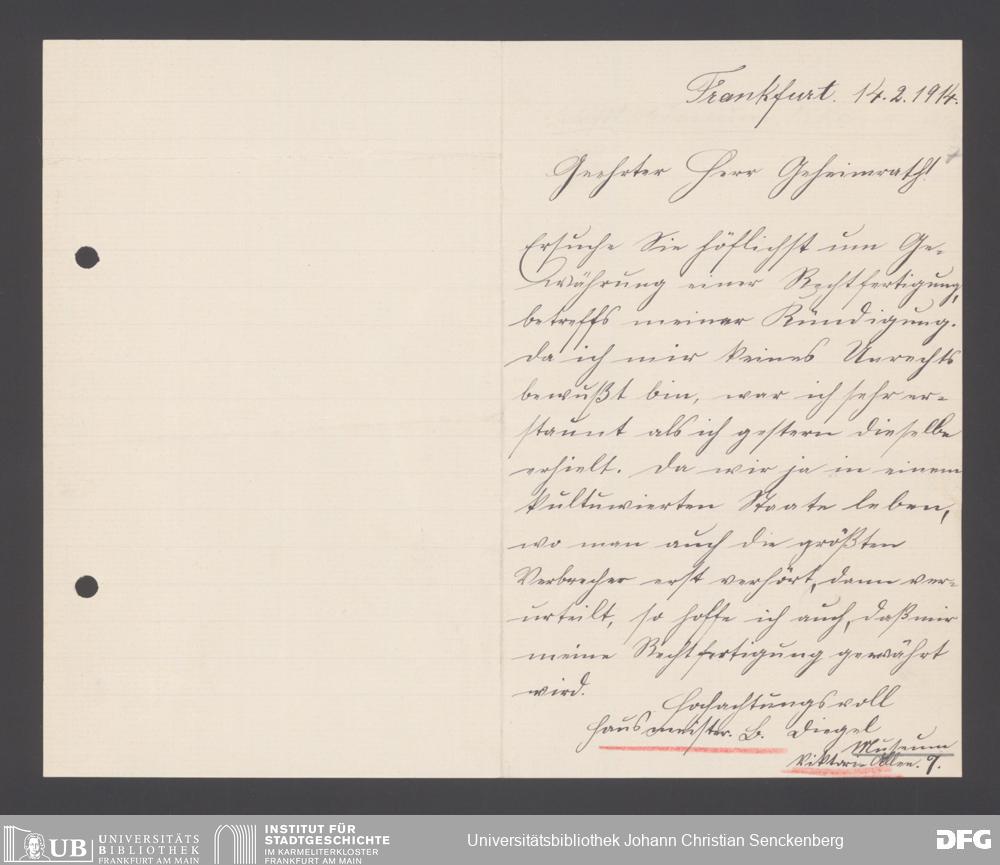 Frankfurt. 14.2.1914.
Geehrter Herr Geheimrath!
Ersuche Sie höflichst um Ge-
währung einer Rechtfertigung,
betreffs meiner Kündigung.
Da ich mir keines Unrechts
bewußt bin, war ich sehr er-
staunt als ich gestern dieselbe
erhielt. Da wir ja in einem
kultuwierten Staate leben,
wo man auch die größten
Verbrecher erst verhört, dann ver-
urteilt, so hoffe ich auch, daß mir
meine Rechtfertigung gewährt
wird.
Hochachtungsvoll
Hausmeister. B. Diegel
Museum
Viktoria Allee. 7.
UB UNIVERSITÄTS
BIBLIOTHEK
FRANKFURT AM MAIN
INSTITUT FÜR
STADTGESCHICHTE
IM KARMELITERKLOSTER
FRANKFURT AM MAIN
Universitätsbibliothek Johann Christian Senckenberg
DFG